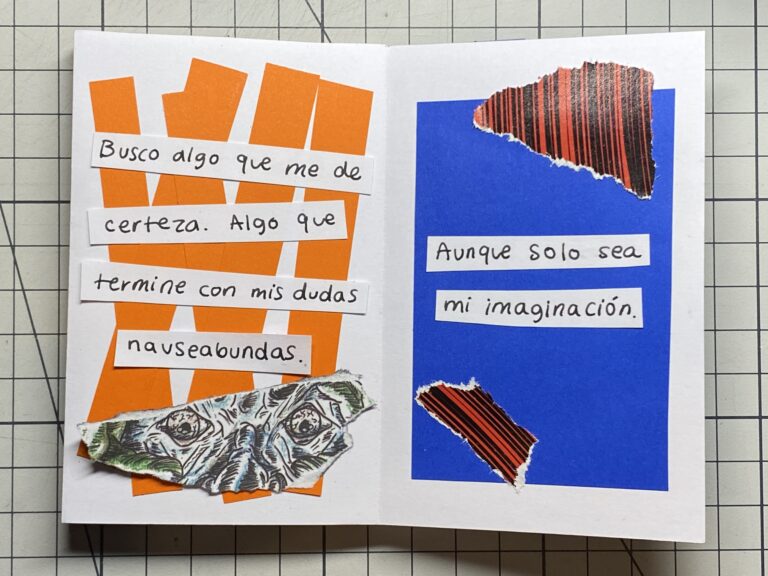 Busco algo que me de
certeza. Algo que
termine con mis dudas
nauseabundas.
Aunque solo sea
mi imaginación.